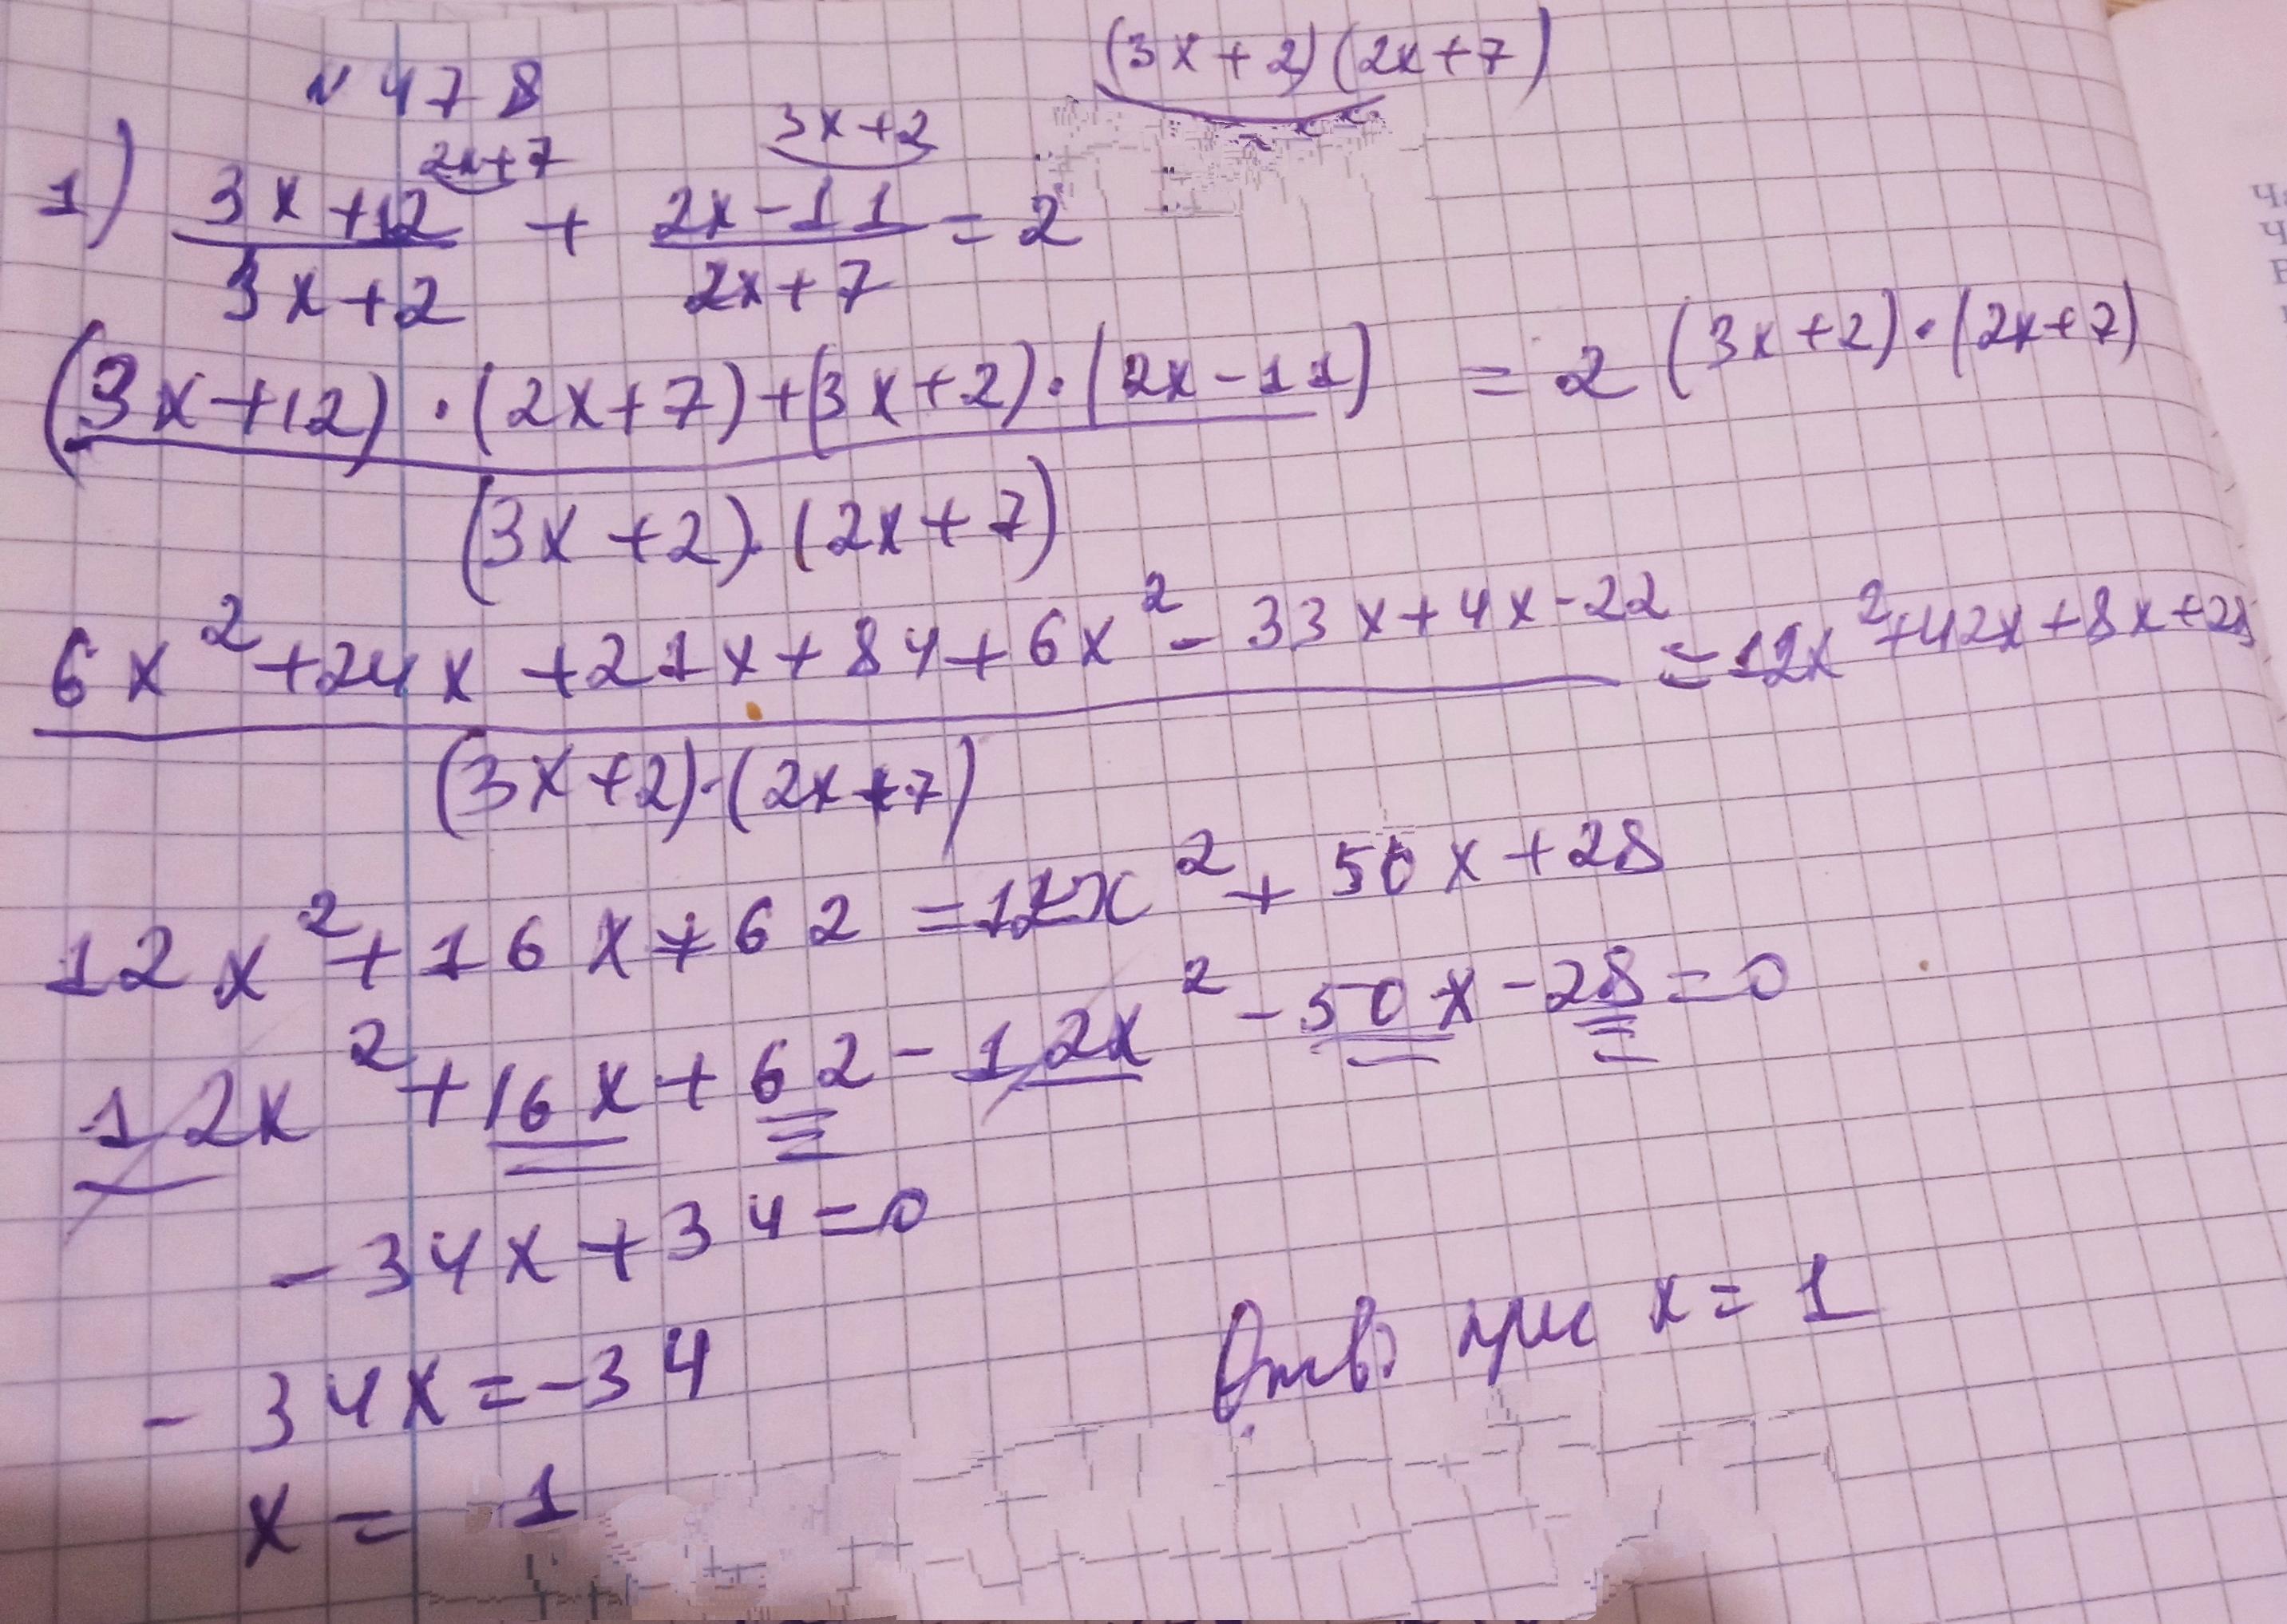 № 478
(3x+2)(2x+7)
2x+7 3x+2
1) (3x+12)/(3x+2) + (2x-11)/(2x+7) = 2
(3x+12)·(2x+7)+(3x+2)·(2x-11) = 2 (3x+2)·(2x+7)
(3x+2)·(2x+7)
6x²+24x+21x+84+6x²-33x+4x-22 = 12x²+42x+8x+28
(3x+2)·(2x+7)
12x²+16x+62=12x²+50x+28
12x²+16x+62-12x²-50x-28=0
-34x+34=0
-34x=-34
Отв: при x=1
x = 1